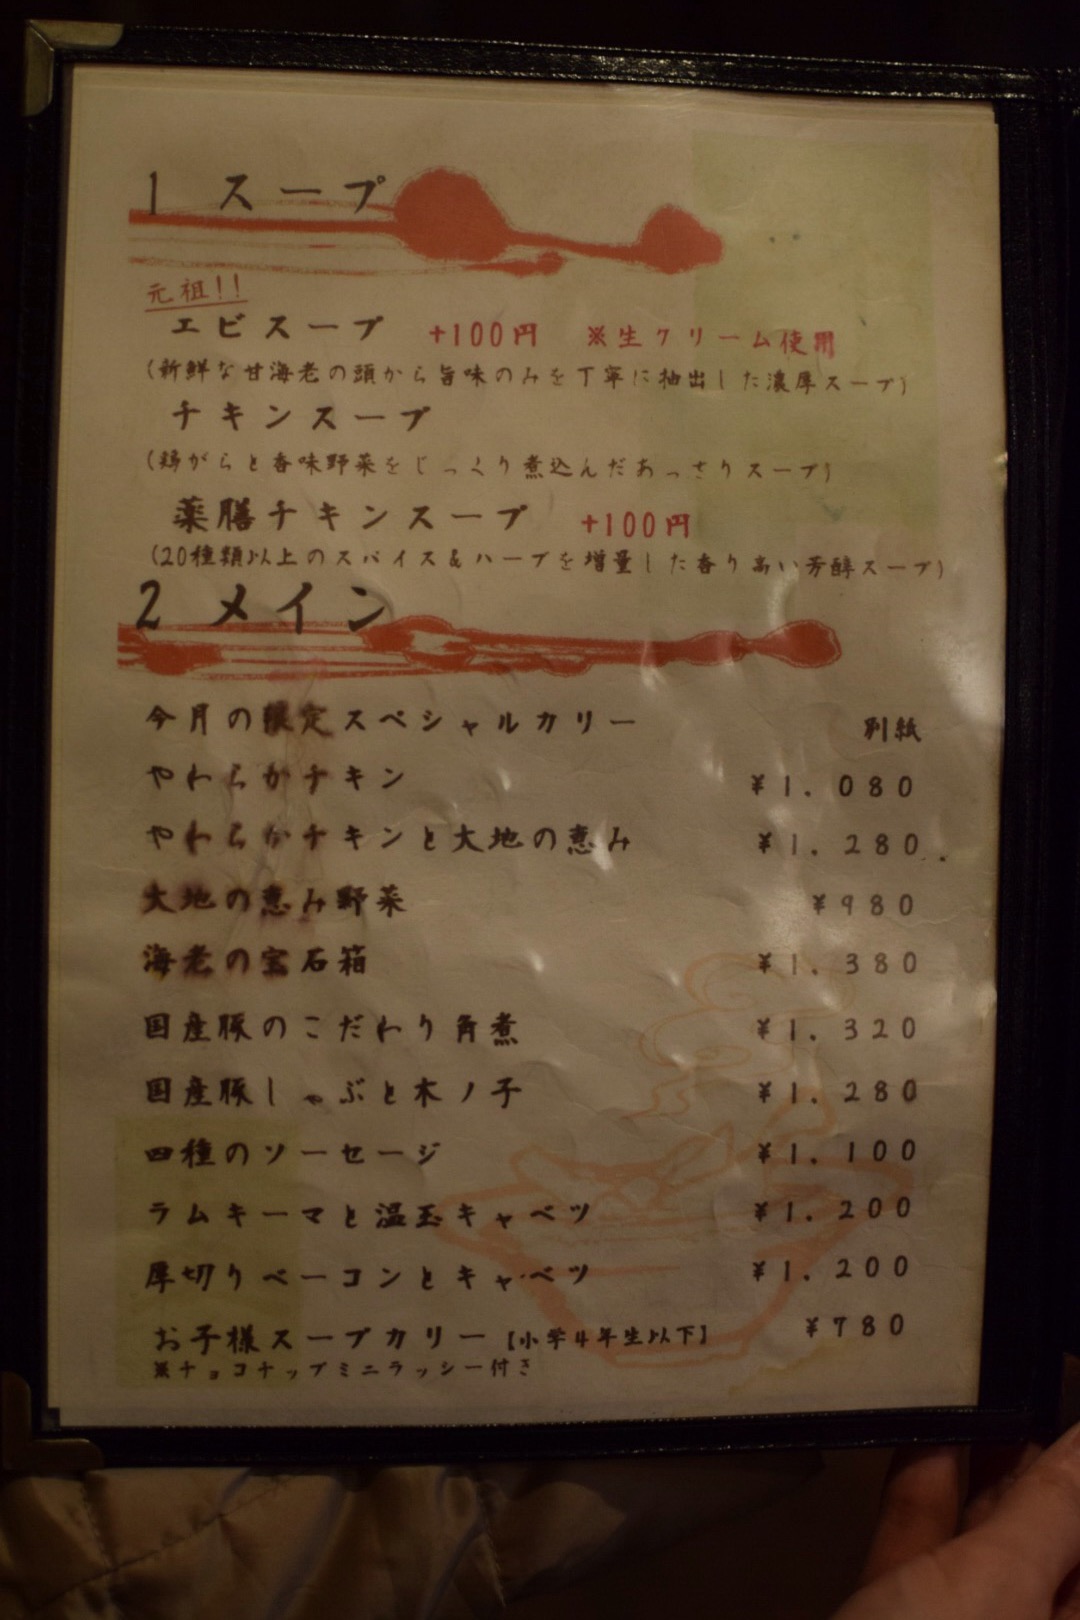 1 スープ
元祖!!
エビスープ +100円 ※生クリーム使用
(新鮮な甘海老の頭から旨味のみを丁寧に抽出した濃厚スープ)
チキンスープ
(鶏がらと香味野菜をじっくり煮込んだあっさりスープ)
薬膳チキンスープ +100円
(20種類以上のスパイス&ハーブを増量した香り高い芳醇スープ)
2 メイン
今月の限定スペシャルカリー 別紙
やわらかチキン ¥1.080
やわらかチキンと大地の恵み ¥1.280
大地の恵み野菜 ¥980
海老の宝石箱 ¥1.380
国産豚のこだわり角煮 ¥1.320
国産豚しゃぶと木ノ子 ¥1.280
四種のソーセージ ¥1.100
ラムキーマと温玉キャベツ ¥1.200
厚切りベーコンとキャベツ ¥1.200
お子様スープカリー【小学4年生以下】 ¥780
※チョコチップミニラッシー付き